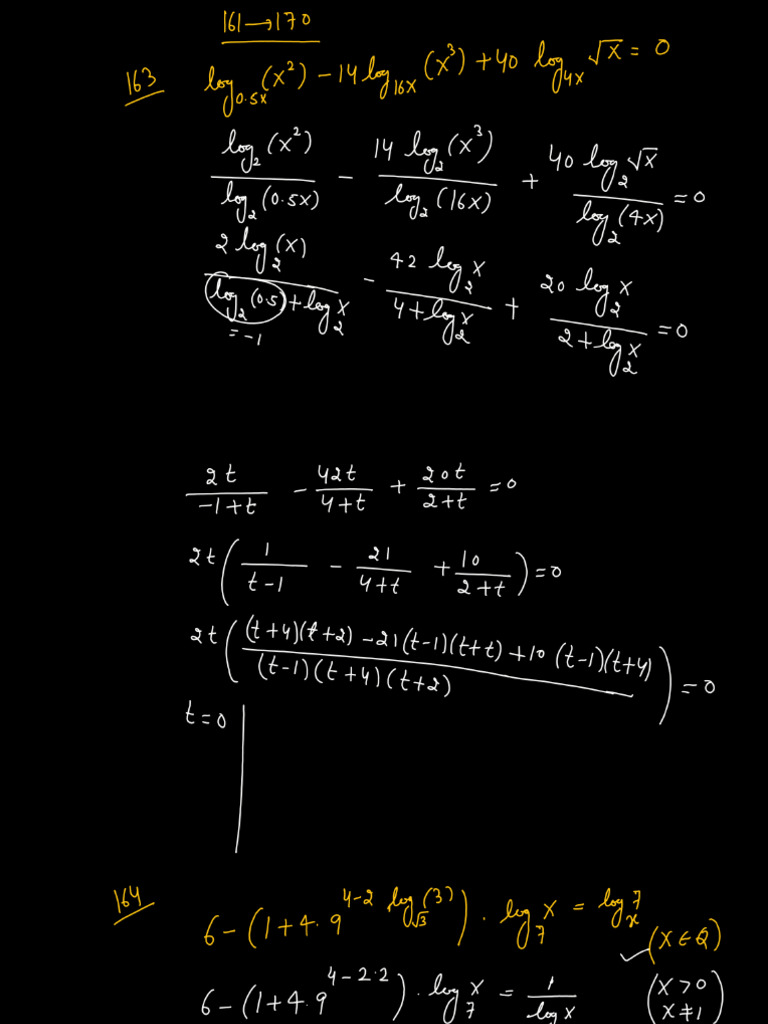 161→170
163 log_{0.5x}(x²) − 14 log_{16x}(x³) + 40 log_{4x} √x = 0
log₂(x²)/log₂(0.5x) − 14 log₂(x³)/log₂(16x) + 40 log₂√x/log₂(4x) = 0
2 log₂(x)/(log₂(0.5) + log₂x) − 42 log₂x/(4 + log₂x) + 20 log₂x/(2 + log₂x) = 0
= −1
2t/(−1+t) − 42t/(4+t) + 20t/(2+t) = 0
2t(1/(t−1) − 21/(4+t) + 10/(2+t)) = 0
2t(((t+4)(t+2) − 21(t−1)(t+t) + 10(t−1)(t+4))/((t−1)(t+4)(t+2))) = 0
t = 0
164 6 − (1 + 4·9^{4−2 log_{√3}(3)}) · log₇x = log_x 7
✓(x ∈ Q)
6 − (1 + 4·9^{4−2·2}) · log₇x = 1/log x (x > 0
x ≠ 1